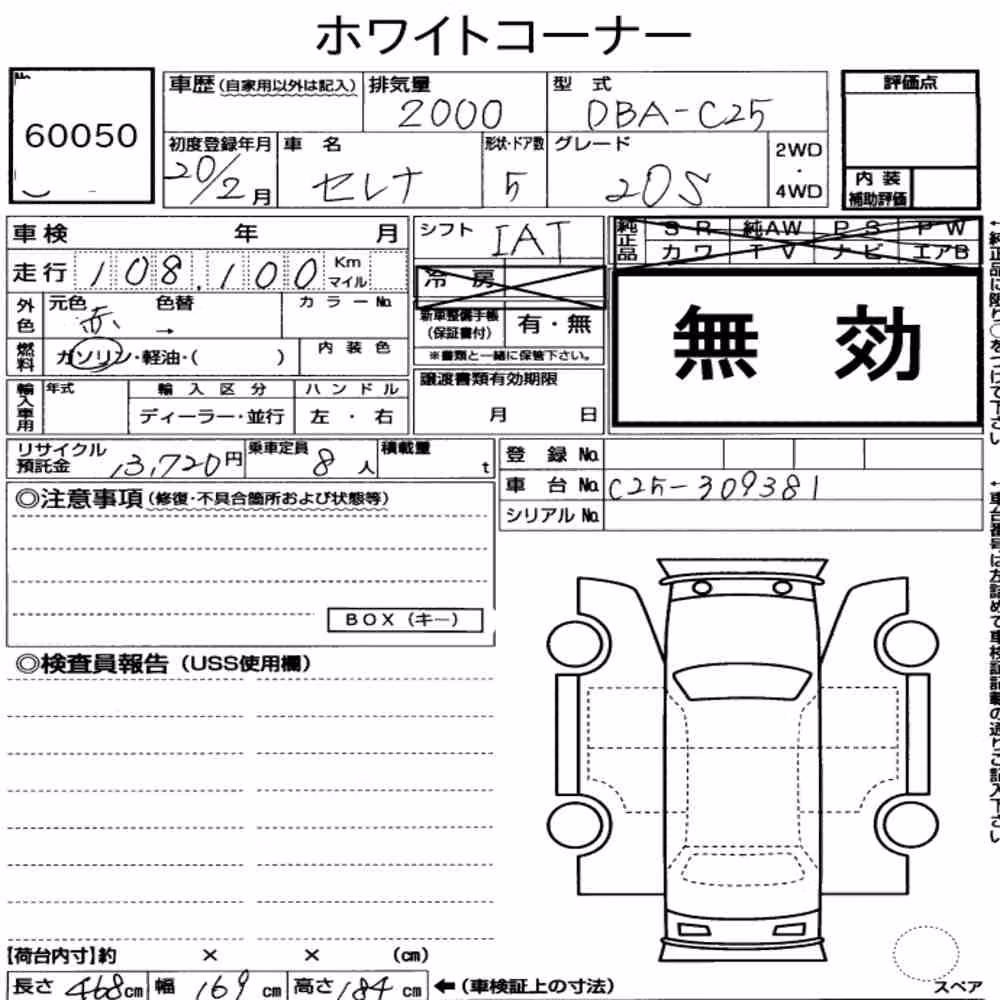 ホワイトコーナー
No.
60050
車歴 (自家用以外は記入) 排気量 2000 型 式 DBA-C25
初度登録年月 20/2月 車 名 セレナ 形状・ドア数 5 グレード 20S 2WD ・ 4WD
評価点
内 装
補助評価
車検 年 月
走行 108,100 Km マイル
外色 元色 赤 色替 → カラーNo.
燃料 ガソリン・軽油・( ) 内装色
輸入車用 年式 輸入区分 ハンドル
ディーラー・並行 左 ・ 右
シフト IAT
冷 房
新車整備手帳
(保証書付) 有・無
※書類と一緒に保管下さい。
譲渡書類有効期限
月 日
純正品 SR 純AW PS PW
カワ TV ナビ エアB
無 効
リサイクル
預託金 13,720円 乗車定員 8人 積載量 t
登 録 No.
車 台 No. C25-309381
シリアル No.
◎注意事項 (修復・不具合箇所および状態等)
BOX (キー)
◎検査員報告 (USS使用欄)
【荷台内寸】約 × × (cm)
長さ 468cm 幅 169cm 高さ 184cm ←(車検証上の寸法)
スペア
←純正品に限り○をつけて下さい
←車台番号は左詰めで車検証記載の通りご記入下さい